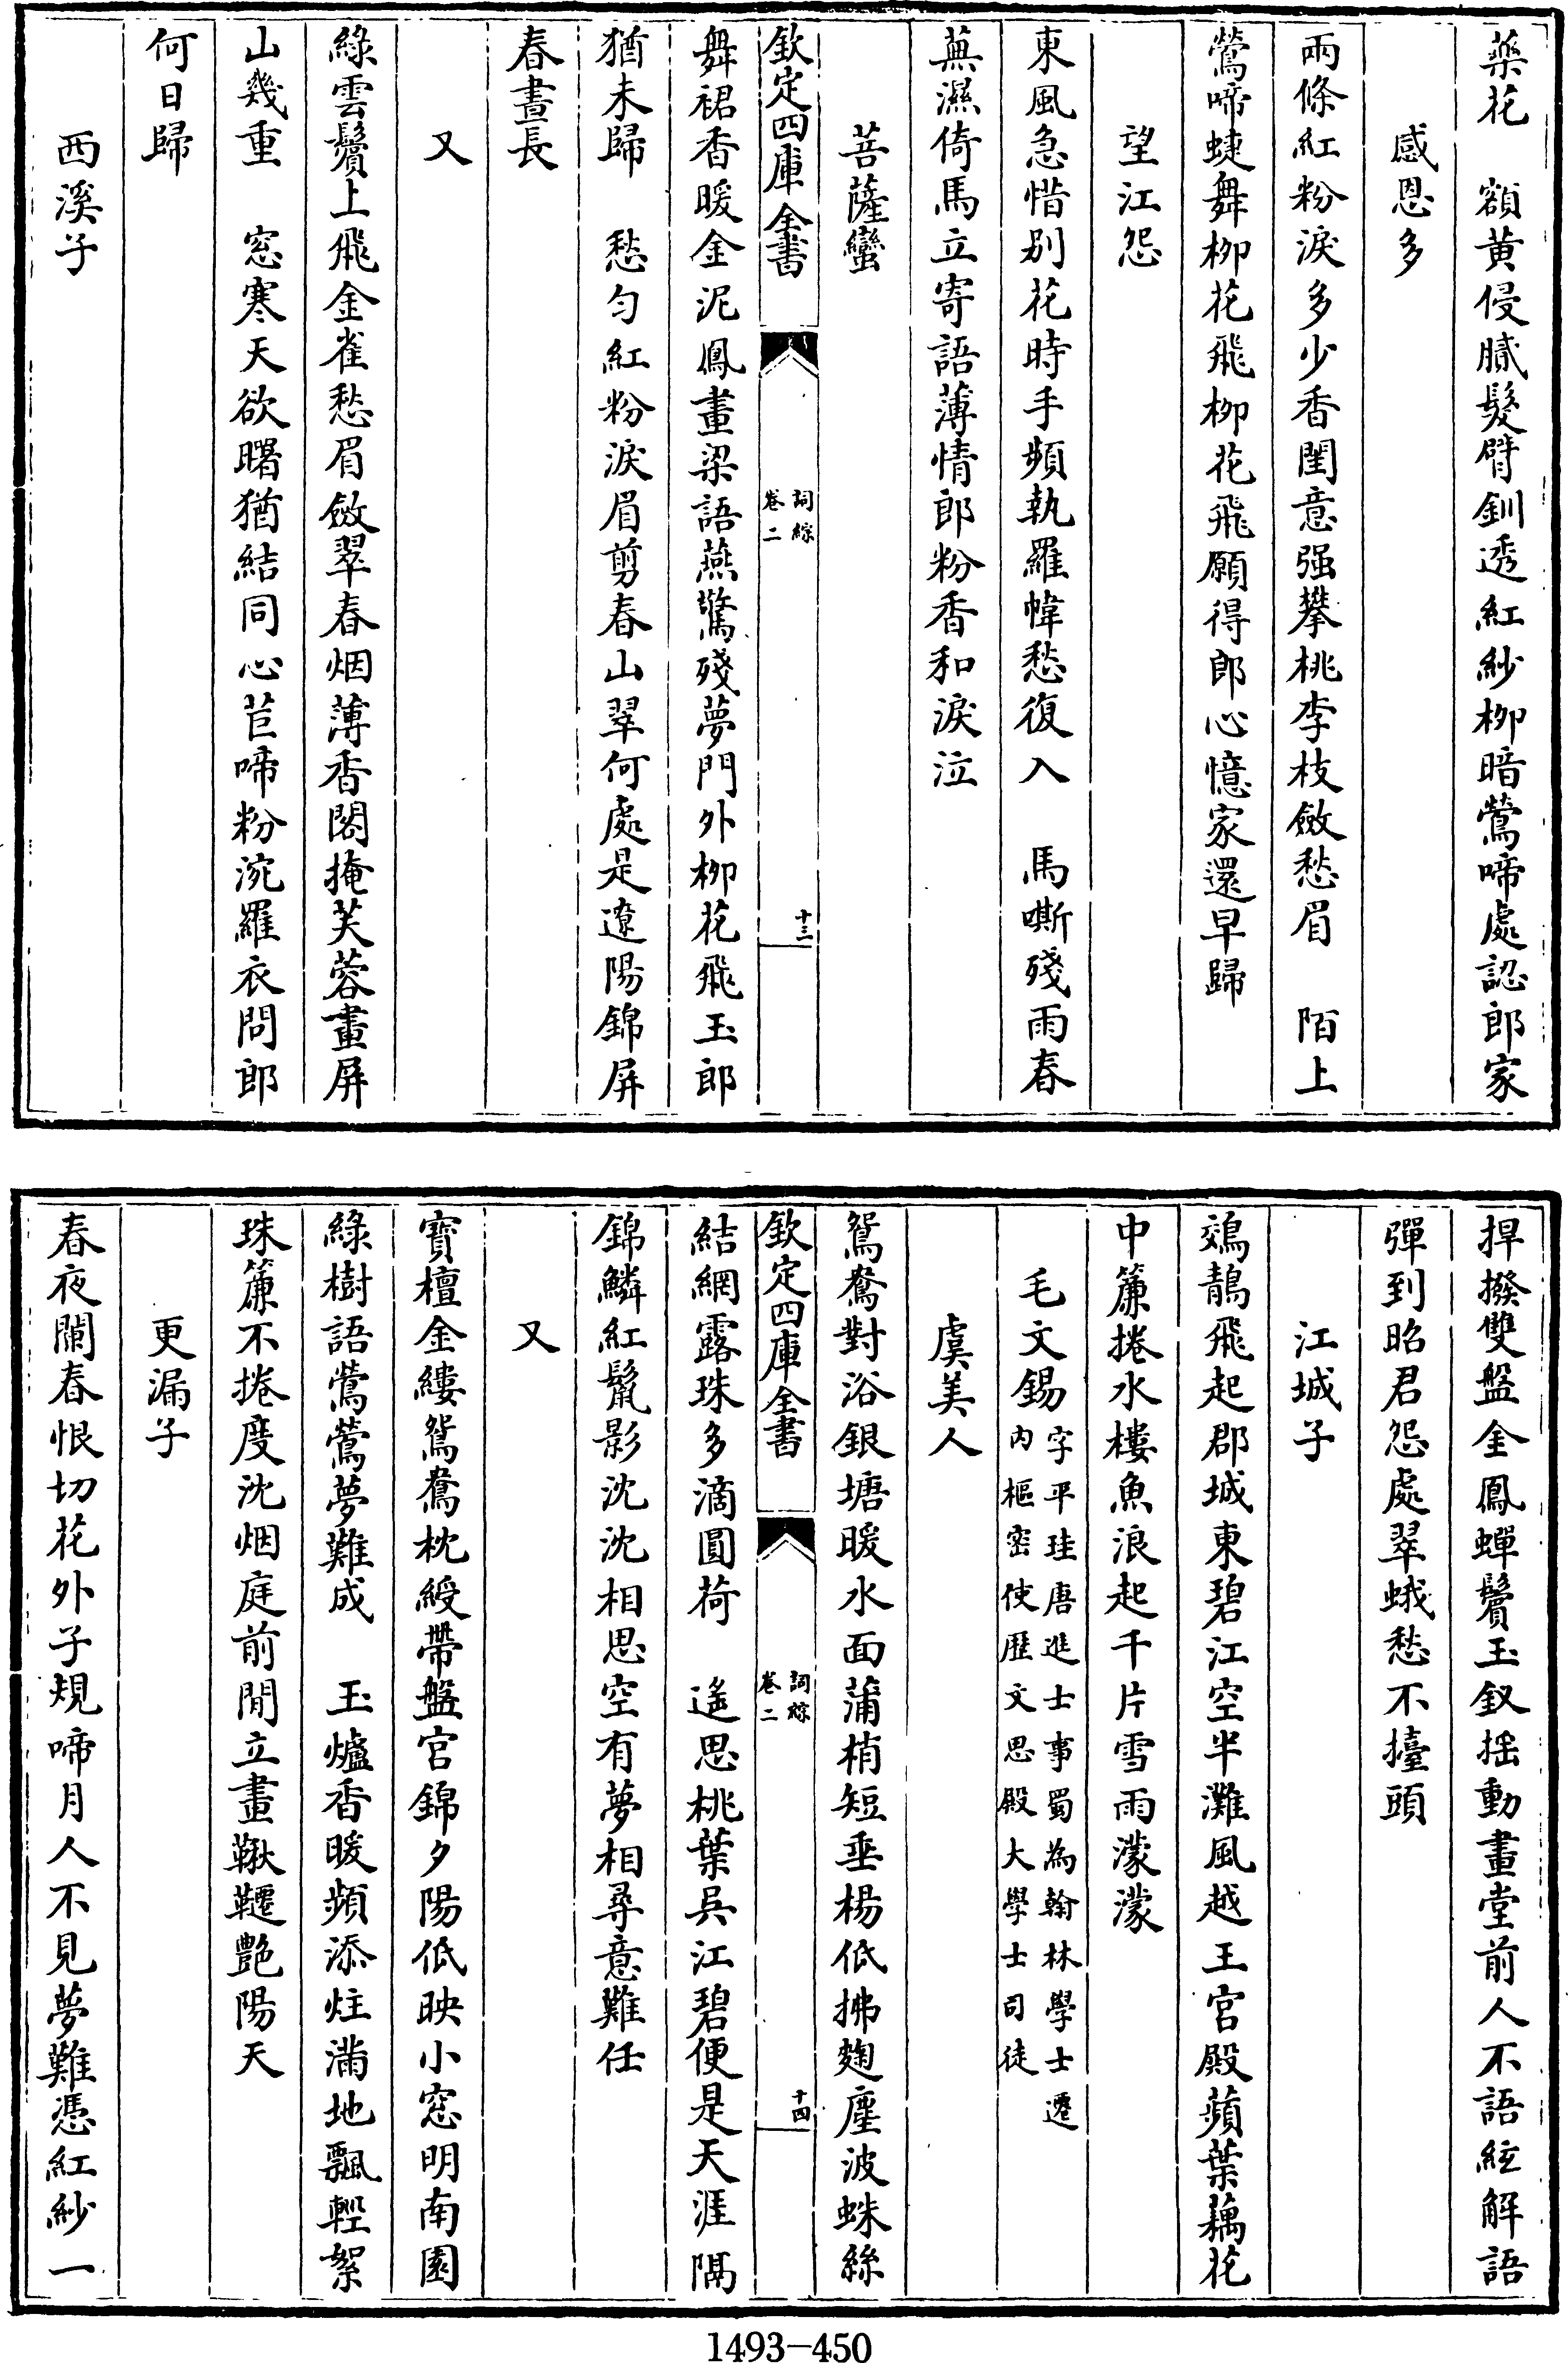 藥花　額黄侵膩髮臂釧透紅紗柳暗鶯啼處認郎家
感恩多
兩條紅粉淚多少香閨意强攀桃李枝斂愁眉　陌上
鶯啼蜨舞柳花飛柳花飛願得郎心憶家還早歸
望江怨
東風急惜别花時手頻執羅幃愁復入　馬嘶殘雨春
蕪濕倚馬立寄語薄情郎粉香和淚泣
菩薩蠻
欽定四庫全書
詞綜
卷二
十三
舞裙香暖金泥鳳畫梁語燕驚殘夢門外柳花飛玉郎
猶未歸　愁匀紅粉淚眉剪春山翠何處是遼陽錦屏
春晝長
又
綠雲鬢上飛金雀愁眉斂翠春烟薄香閣掩芙蓉畫屏
山幾重　窓寒天欲曙猶結同心苣啼粉涴羅衣問郎
何日歸
西溪子
捍撥雙盤金鳳蟬鬢玉釵摇動畫堂前人不語絃解語
彈到昭君怨處翠蛾愁不擡頭
江城子
鵁鶄飛起郡城東碧江空半灘風越王宮殿蘋葉藕花
中簾捲水樓魚浪起千片雪雨濛濛
毛文錫
字平珪唐進士事蜀為翰林學士遷
内樞密使歷文思殿大學士司徒
虞美人
鴛鴦對浴銀塘暖水面蒲梢短垂楊低拂麴塵波蛛絲
欽定四庫全書
詞綜
卷二
十四
結網露珠多滴圓荷　遙思桃葉吳江碧便是天涯隔
錦鱗紅鬣影沈沈相思空有夢相尋意難任
又
寶檀金縷鴛鴦枕綬帶盤宮錦夕陽低映小窓明南園
綠樹語鶯鶯夢難成　玉爐香暖頻添炷滿地飄輕絮
珠簾不捲度沈烟庭前閒立畫鞦韆艶陽天
更漏子
春夜闌春恨切花外子規啼月人不見夢難憑紅紗一
1493-450